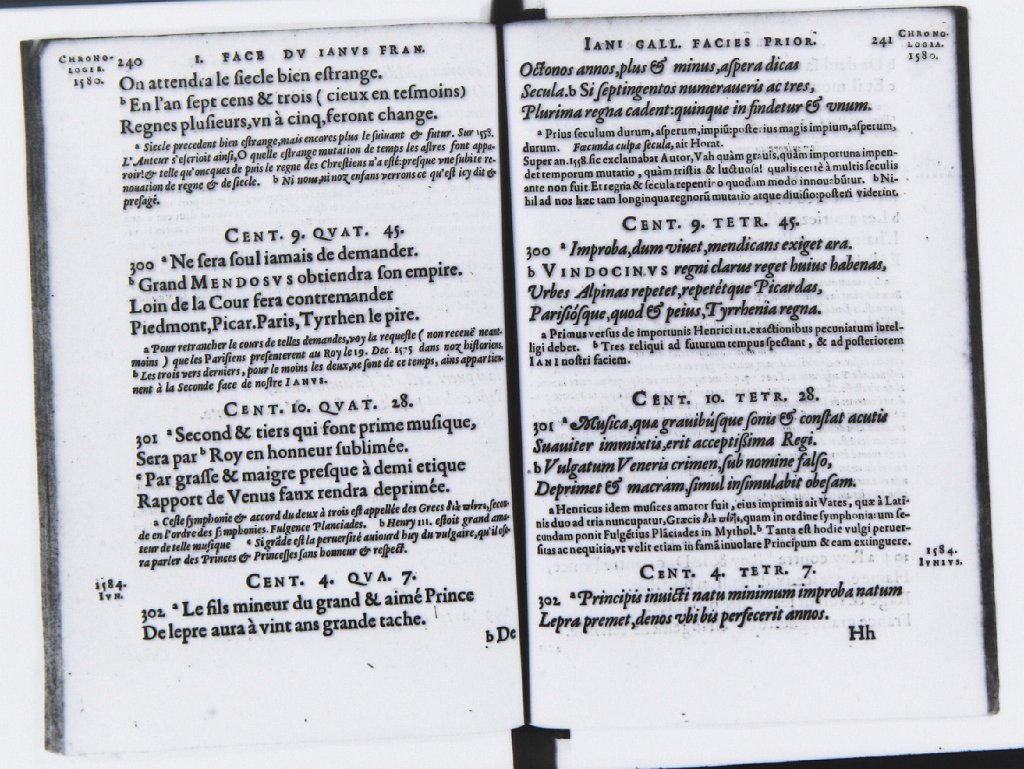 CHRONO-
LOGIE.
1580.
240
I. FACE DV IANVS FRAN.
On attendra le siecle bien estrange.
b En l'an sept cens & trois ( cieux en tesmoins)
Regnes plusieurs, vn à cinq, feront change.
a Siecle precedent bien estrange, mais encores plus le suiuant & futur. Sur 1558.
L'Auteur s'escrioit ainsi, O quelle estrange mutation de temps les astres font appa-
roir! & telle qu'oncques de puis le regne des Chrestiens n'a esté: presque vne subite re-
nouation de regne & de siecle. b Ni nous, ni noz enfans verrons ce qu'est icy dit &
presagé.
CENT. 9. QVAT. 45.
300 a Ne sera soul iamais de demander.
b Grand MENDOSVS obtiendra son empire.
Loin de la Cour fera contremander
Piedmont, Picar. Paris, Tyrrhen le pire.
a Pour retrancher le cours de telles demandes, voy la requeste ( non receuë neant-
moins ) que les Parisiens presenterent au Roy le 19. Dec. 1575 dans noz historiens.
b Les trois vers derniers, pour le moins les deux, ne sons de ce temps, ains appartien-
nent à la Seconde face de nostre IANVS.
CENT. 10. QVAT. 28.
301 a Second & tiers qui font prime musique,
Sera par b Roy en honneur sublimée.
c Par grasse & maigre presque à demi etique
Rapport de Venus faux rendra deprimée.
a Ceste symphonie & accord du deux à trois est appellée des Grecs
de en l'ordre des symphonies. Fulgence Planciades. b Henry III. estoit grand ama-
teur de telle musique c Si grāde est la peruersité auiourd huy du vulgaire, qu'il ose-
ra parler des Princes & Princesses sans honneur & respect.
1584.
IVN.
CENT. 4. QVA. 7.
302 a Le fils mineur du grand & aimé Prince
De lepre aura à vint ans grande tache.
b De
IANI GALL. FACIES PRIOR.
241
CHRONO-
LOGIA.
1580.
Octonos annos, plus & minus, aspera dicas
Secula. b Si septingentos numeraueris ac tres,
Plurima regna cadent: quinque in findetur & vnum.
a Prius seculum durum, asperum, impiū: posterius magis impium, asperum,
durum. Fœcunda culpa secula, ait Horat.
Super an. 1558. sic exclamabat Autor, Vah quàm grauis, quàm importuna impen-
det temporum mutatio, quàm tristis & luctuosa! qualis certè à multis seculis
ante non fuit Et regna & secula repentino quodam modo innouabūtur. b Ni-
hil ad nos hæc tam longinqua regnorū mutatio atque diuisio: posteri viderint.
CENT. 9. TETR. 45.
300 a Improba, dum viuet, mendicans exiget ara.
b VINDOCINVS regni clarus reget huius habenas,
Vrbes Alpinas repetet, repetétque Picardas,
Parisiósque, quod & peius, Tyrrhenia regna.
a Primus versus de importunis Henrici III. exactionibus pecuniarum intel-
ligi debet. b Tres reliqui ad futurum tempus spectant, & ad posteriorem
IANI nostri faciem.
CENT. 10. TETR. 28.
301 a Musica, quæ grauibúsque sonis & constat acutis
Suauiter immixtis, erit acceptissima Regi.
b Vulgatum Veneris crimen, sub nomine falso,
Deprimet & macram, simul insimulabit obesam.
a Henricus idem musices amator fuit, eius imprimis ait Vates, quæ à Lati-
nis duo ad tria nuncupatur, Græcis quam in ordine symphoniarum se-
cundam ponit Fulgētius Plāciades in Mythol. b Tanta est hodie vulgi peruer-
sitas ac nequitia, vt velit etiam in famā inuolare Principum & eam extinguere.
1584.
IVNIVS.
CENT. 4. TETR. 7.
302 a Principis inuicti natu minimum improba natum
Lepra premet, denos vbi bis perfecerit annos.
Hh